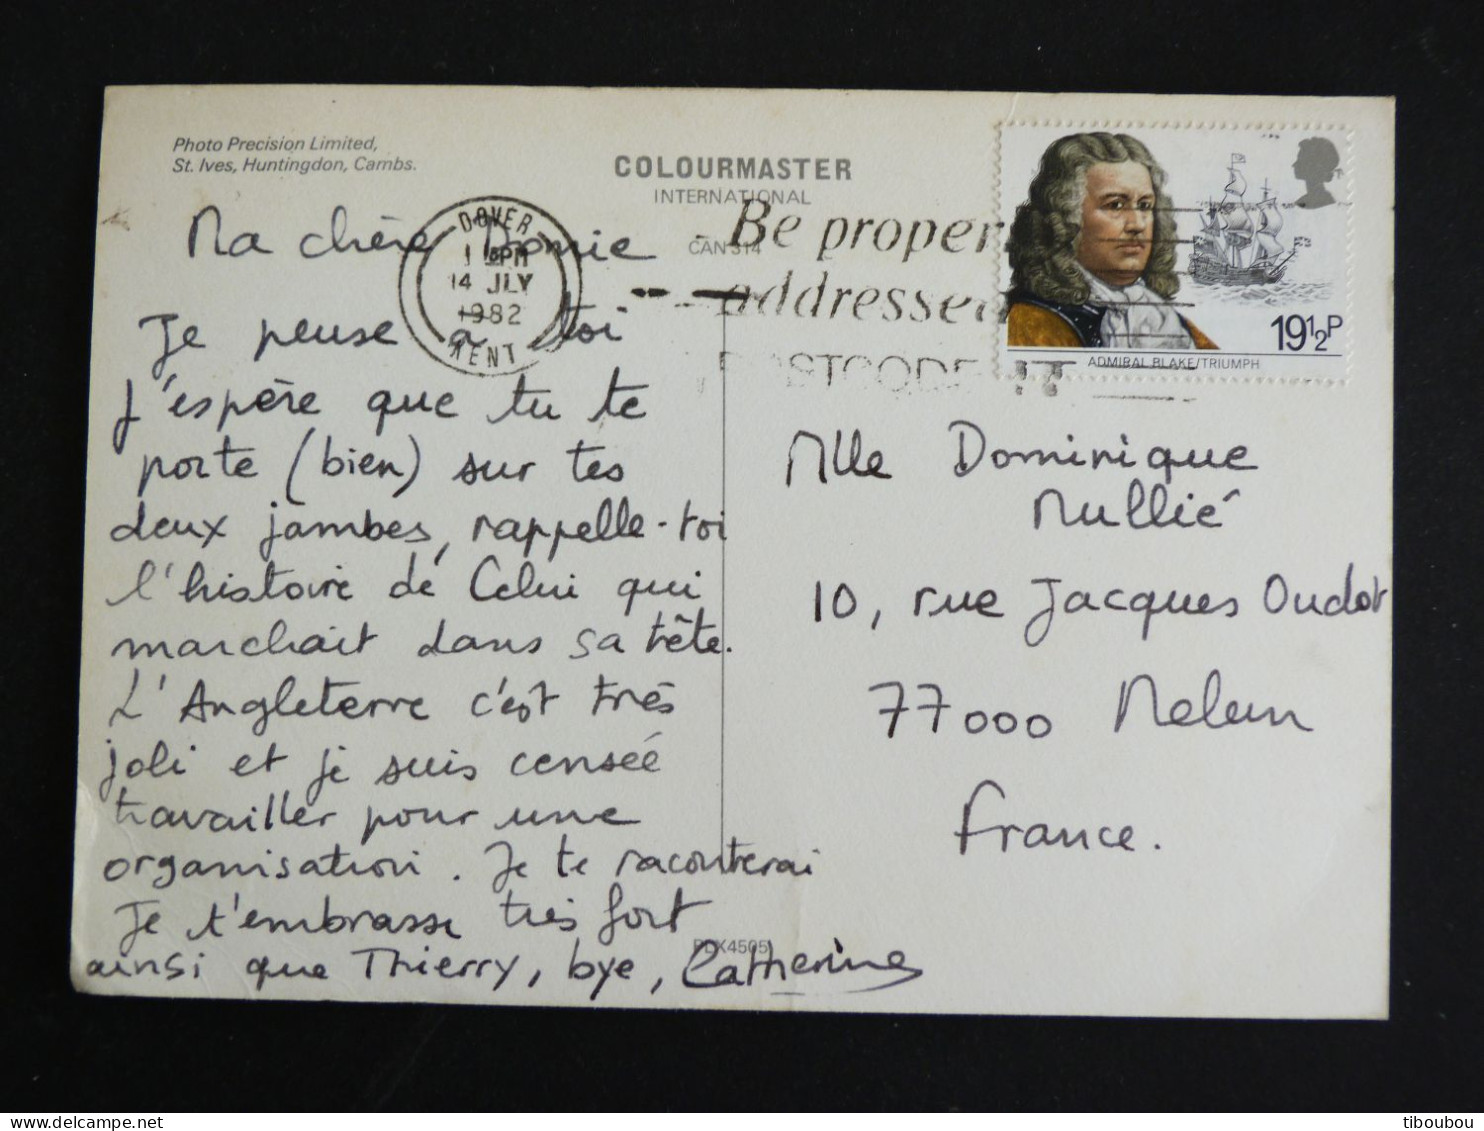 Photo Precision Limited,
St. Ives, Huntingdon, Cambs.
COLOURMASTER
INTERNATIONAL
CAN 314
DOVER
1 PM
14 JLY
1982
KENT
Be proper
addressed
POSTCODE IT
19½P
ADMIRAL BLAKE/TRIUMPH
Ma chère Domie
Je pense à toi
J'espère que tu te
porte (bien) sur tes
deux jambes, rappelle-toi
l'histoire de Celui qui
marchait dans sa tête.
L'Angleterre c'est très
joli et je suis censée
travailler pour une
organisation. Je te raconterai
Je t'embrasse très fort
ainsi que Thierry, bye, Catherine
PLX4505
Mlle Dominique
Mullié
10, rue Jacques Oudot
77000 Melun
France.
tiboubou